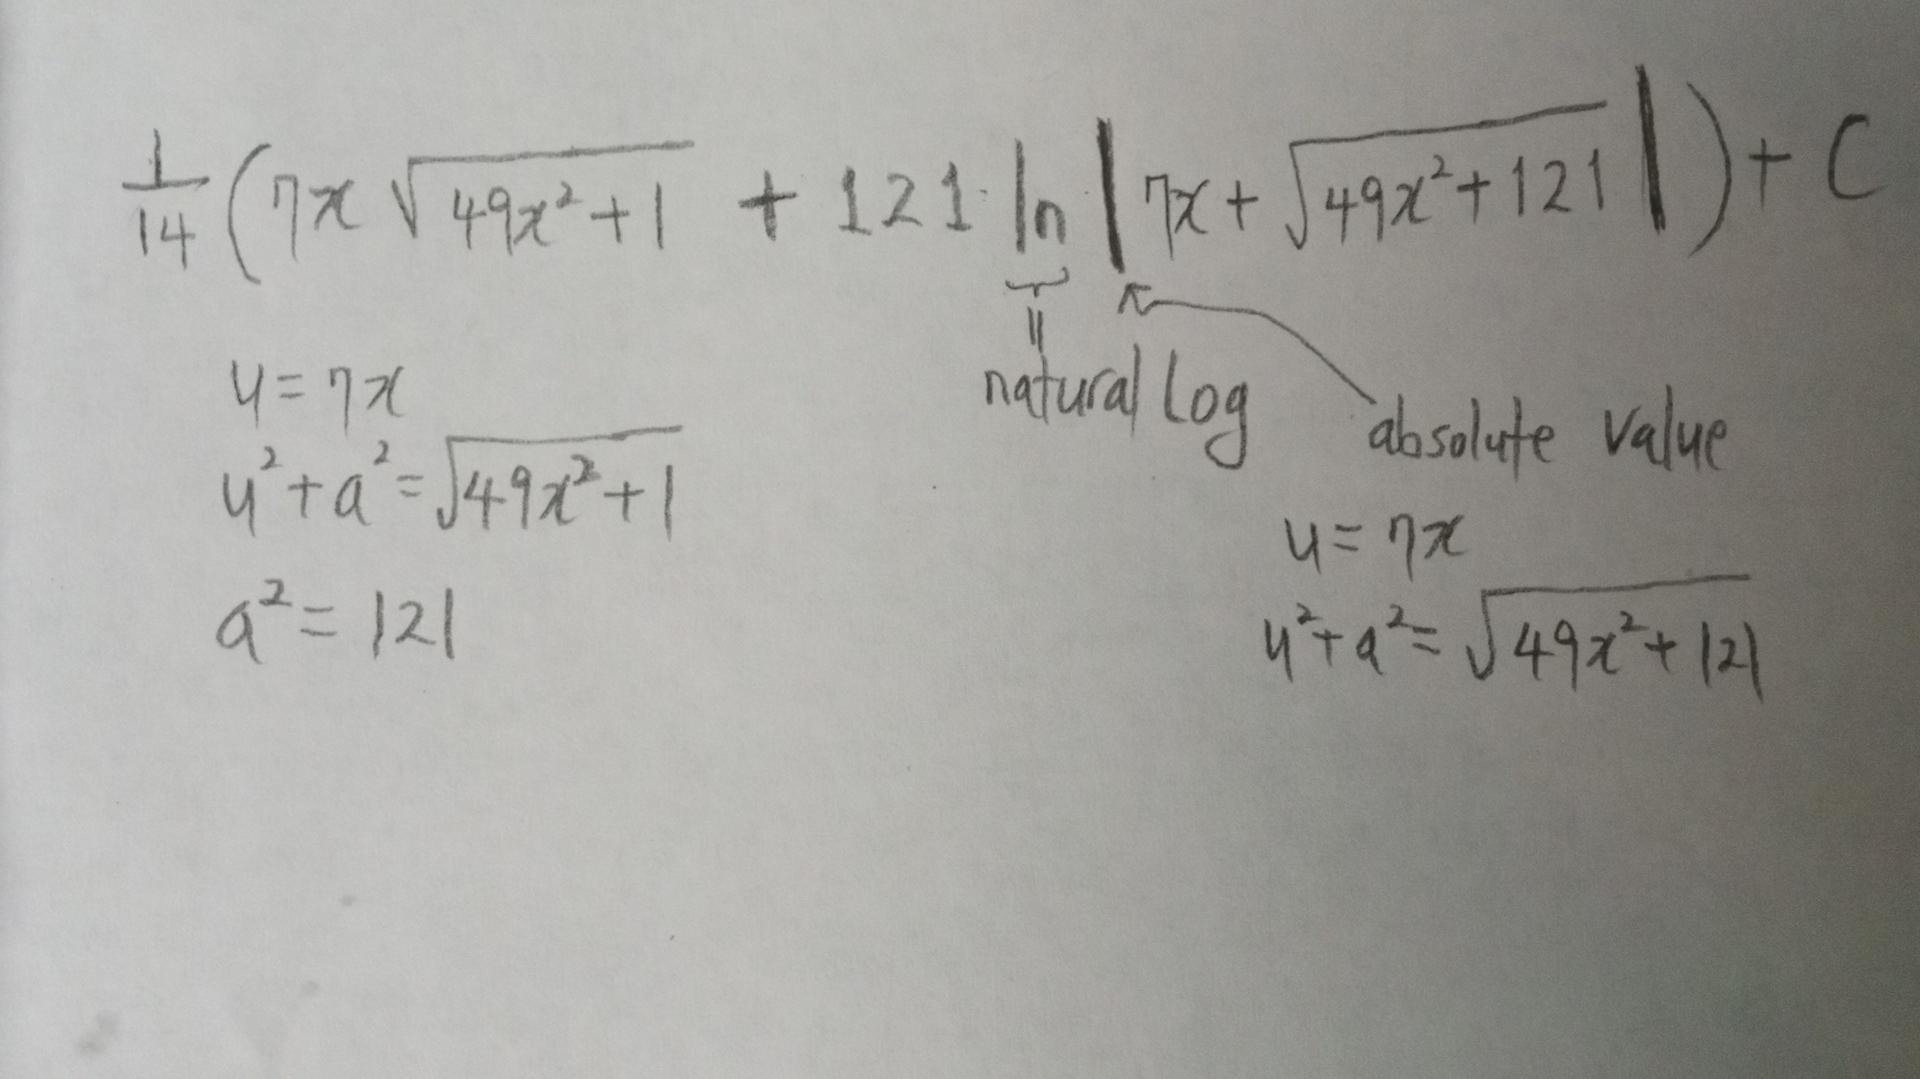 1/14 (7x √(49x²+1) + 121 ln |7x + √(49x²+121)|) + C
natural log
absolute value
u = 7x
u² + a² = √(49x²+1)
a² = 121
u = 7x
u² + a² = √(49x²+121)